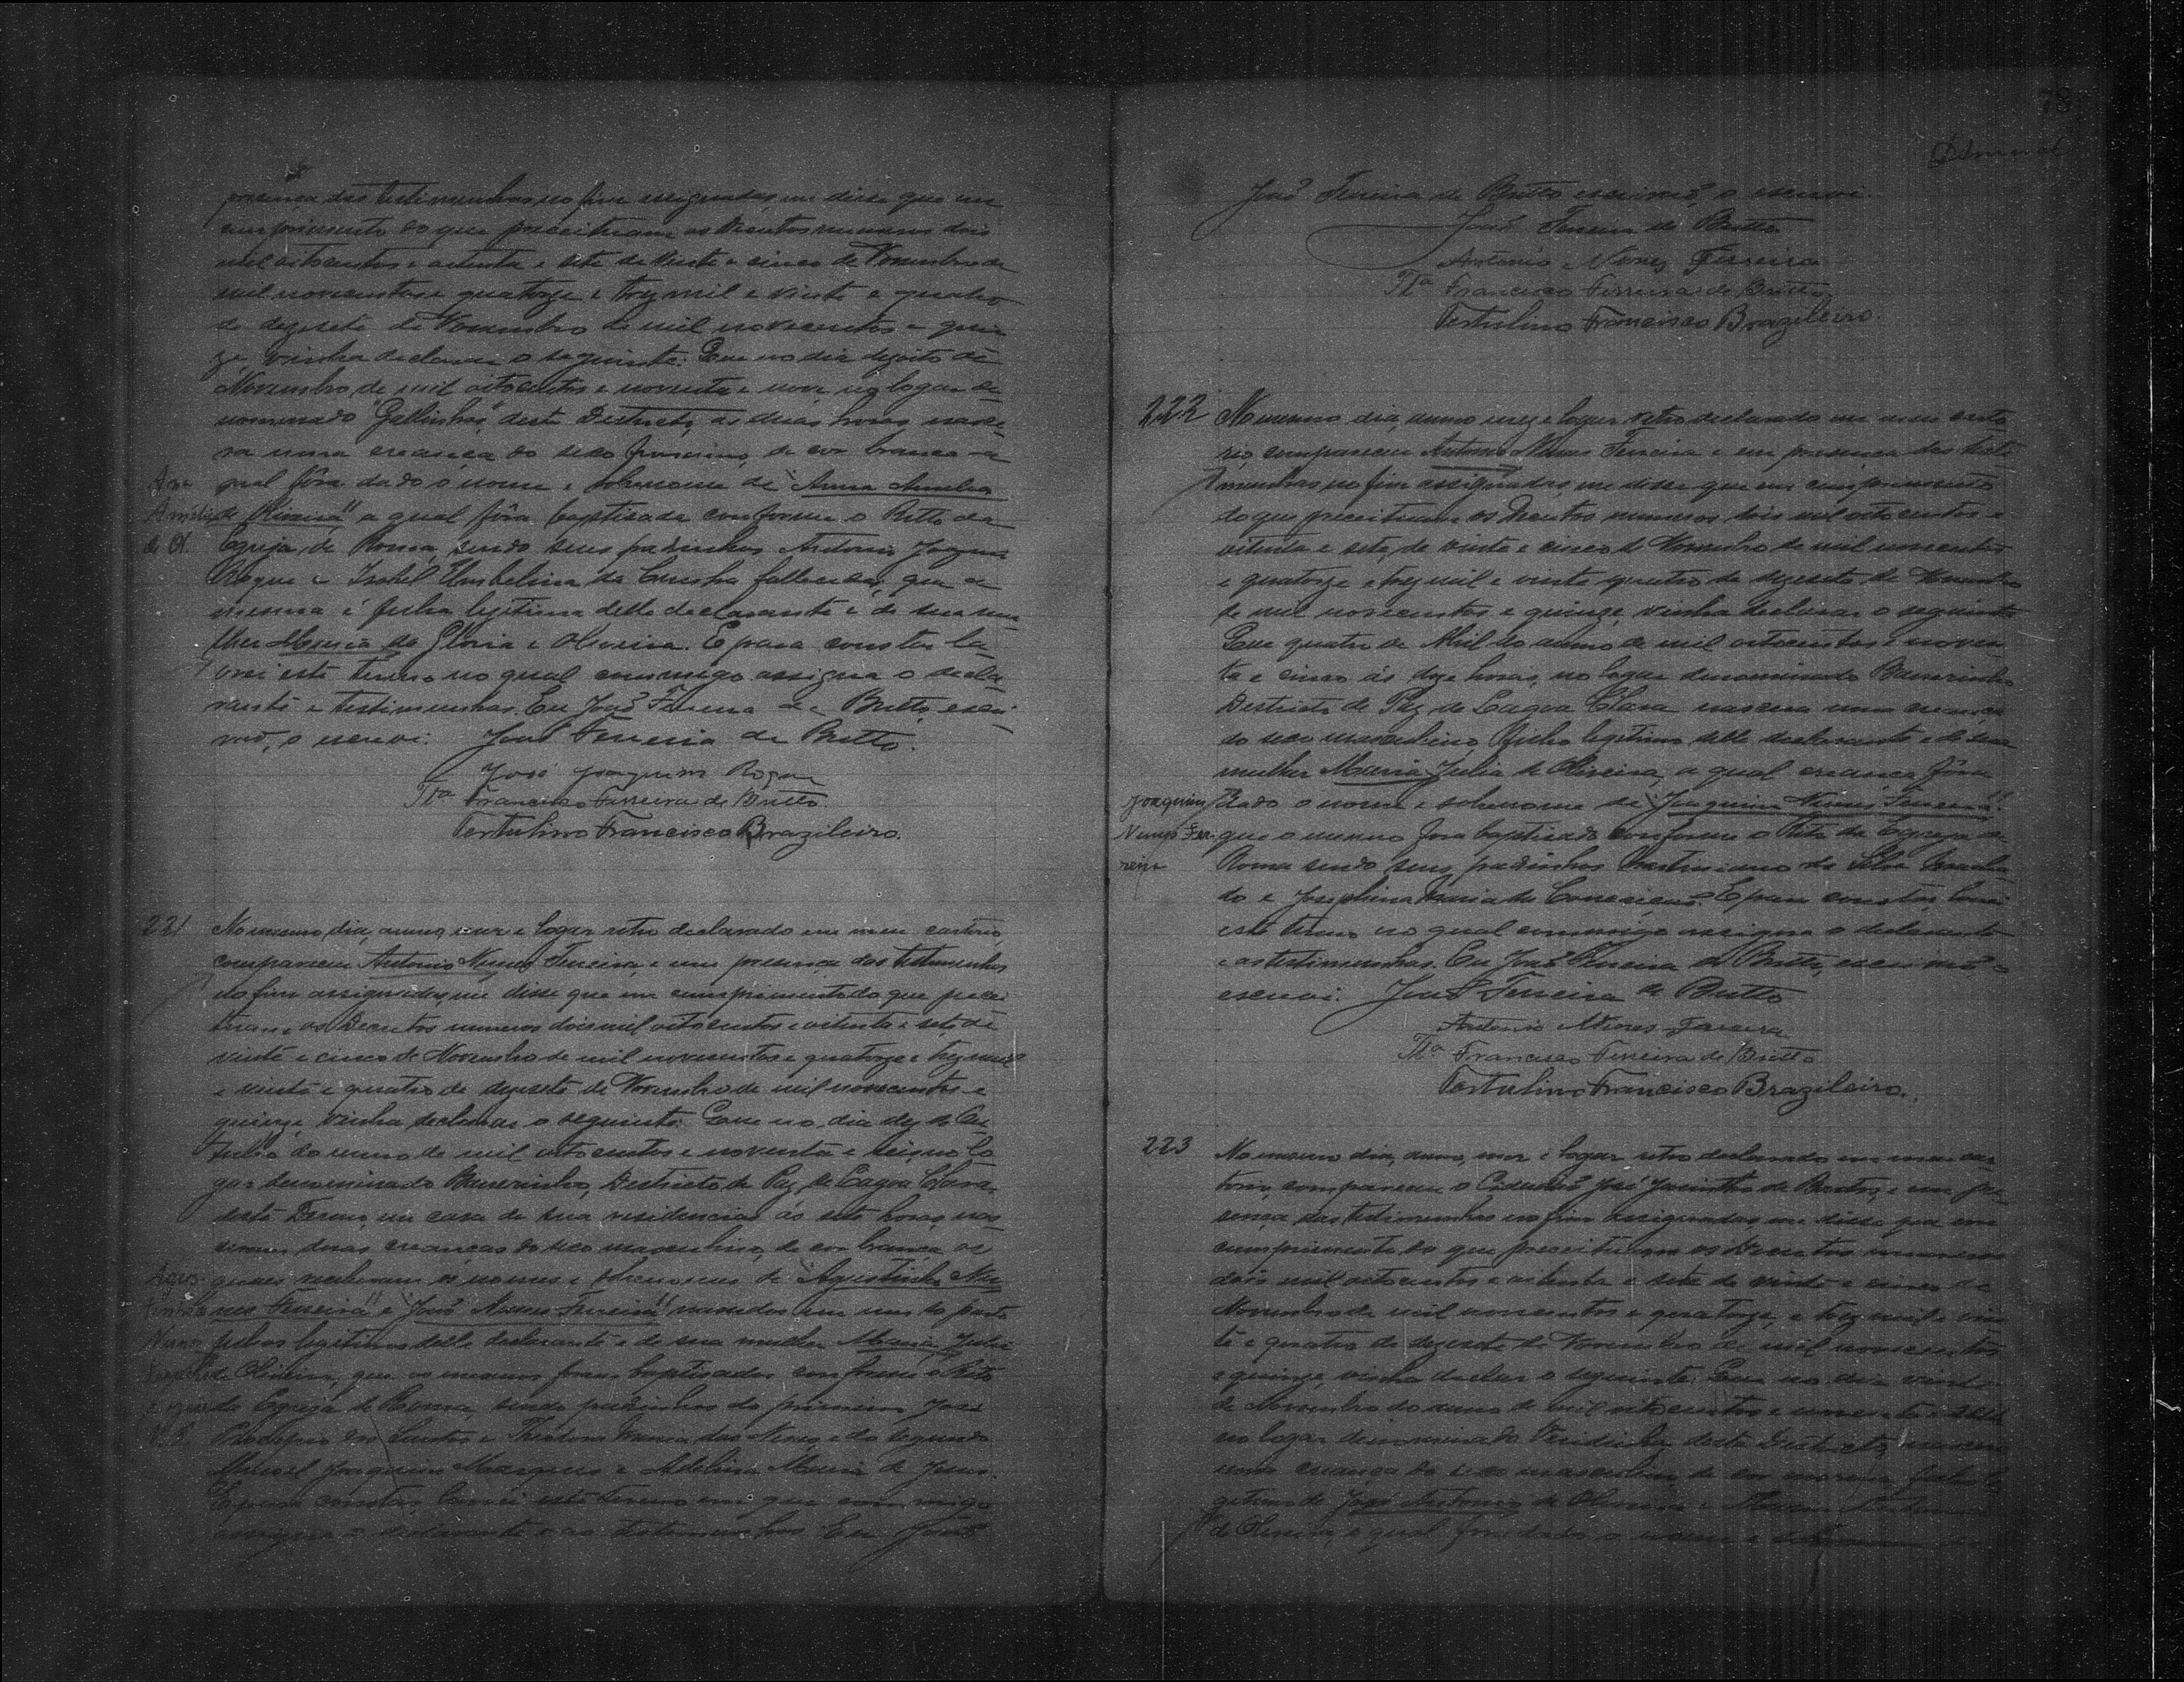 presença das testimunhas no fim assignadas, me disse que em
cumprimento do que preceituam os Decretos numeros dois
mil oitocentos e oitenta e sete de vinte e cinco de Novembro de
mil novecentos e quatorze e trez mil e vinte e quatro
de dezesete de Novembro de mil novecentos e quin-
ze, vinha declarar o seguinte: Que no dia dezoito de
Novembro de mil oitocentos e noventa e nove no logar de-
nominado "Gallinhas" deste Destricto, as duas horas, nasce-
ra uma creança do sexo feminino, de cor branca a
Anna qual fôra dado o nome e sobrenome de "Anna Amelia
Amelia de Oliveira" a qual fôra baptisada conforme o Ritto da
de Ol. Egreja de Roma, sendo seus padrinhos Antonio Joaquim
Roque e Isabel Umbelina da Cunha fallecida, que a
mesma é filha legitima delle declarante e de sua mu-
lher Maria da Gloria e Oliveira. E para constar la-
vrei este termo no qual commigo assigna o decla-
rante e testimunhas. Eu José Ferreira de Britto, escri-
vão, o escrevi. José Ferreira de Britto.
José Joaquim Roque
Tta Francisco Ferreira de Britto.
Tertulino Francisco Brazileiro.
221 No mesmo dia, anno, mez e logar retro declarado em meu cartorio,
compareceu Antonio Nunes Ferreira, e em presença das testimunhas
no fim assignadas, me disse que em cumprimento do que precei-
tuam os Decretos numeros dois mil oitocentos e oitenta e sete de
vinte e cinco de Novembro de mil novecentos e quatorze e trez mil
e vinte e quatro de dezesete de Novembro de mil novecentos e
quinze, vinha declarar o seguinte: Que no dia dez de Ou-
tubro do anno de mil oitocentos e noventa e seis, no lo-
gar denominado Barreirinho, Destricto de Paz de Lagoa Clara,
deste Termo, em casa de sua residencia, ás sete horas, nas-
ceram duas creanças do sexo masculino, de cor branca, os
quaes receberam os nomes e sobrenomes de "Agustinho Nu-
nes Ferreira" e "José Nunes Ferreira" nascidos em um só parto
Nunes filhos legitimos delle declarante e de sua mulher Maria Julia
de Oliveira, que os mesmos foram baptisados conforme o Rito
da Egreja de Roma, sendo padrinhos do primeiro José
dos Santos e Theodora Maria das Neves e do segundo
Manoel Joaquim Marques e Adelina Maria de Jesus.
E para constar, lavrei este termo em que commigo
assigna o declarante e as testimunhas. Eu José
78
José Ferreira de Britto escrivão, o escrevi.
José Ferreira de Britto
Antonio Nunes Ferreira
Tta Francisco Ferreira de Britto
Tertulino Francisco Brazileiro.
222 No mesmo dia, anno mez e logar retro declarado em meu carto-
rio, compareceu Antonio Nunes Ferreira e em presença das testi-
munhas no fim assignadas, me disse que em cumprimento
do que preceituam os Decretos numeros dois mil oitocentos e
oitenta e sete, de vinte e cinco de Novembro de mil novecentos
e quatorze e trez mil e vinte e quatro de dezesete de Novembro
de mil novecentos e quinze, vinha declarar o seguinte:
Que quatro de Abril do anno de mil oitocentos e noven-
ta e cinco ás doze horas, no logar denominado Barreirinho
Destricto de Paz de Lagoa Clara nascera uma creança
do sexo masculino, filho legitimo delle declarante e de sua
mulher Maria Julia de Oliveira, a qual creança fôra
Joaquim dado o nome e sobrenome de "Joaquim Nunes Ferreira".
Nunes Fer- que o mesmo fora baptisado conforme o Rito da Egreja de
reira Roma sendo seus padrinhos da Silva
do e Josephina Maria da Conceição. E para constar, lavrei
este termo no qual commigo assigna o declarante
e as testimunhas. Eu José Ferreira de Britto, escrivão o
escrevi. José Ferreira de Britto
Antonio Nunes Ferreira
Tta Francisco Ferreira de Britto
Tertulino Francisco Brazileiro.
223 No mesmo dia, anno, mez e logar retro declarado em meu car-
torio, compareceu o Cidadão José Jacintho de Bastos, e em pre-
sença das testimunhas no fim assignadas me disse que em
cumprimento do que preceituam os Decretos numeros
dois mil oitocentos e oitenta e sete de vinte e cinco de
Novembro de mil novecentos e quatorze, e trez mil e vin-
te e quatro de dezesete de Novembro de mil novecentos
e quinze, vinha declarar o seguinte: Que no dia vinte
de Novembro do anno de mil oitocentos e noventa e sete
no logar denominado deste Destricto, nasceu
uma creança do sexo masculino de cor morena, filho le-
gitimo de José Antonio de Oliveira e Maria
de Oliveira, a qual fora dado o nome e sobrenome